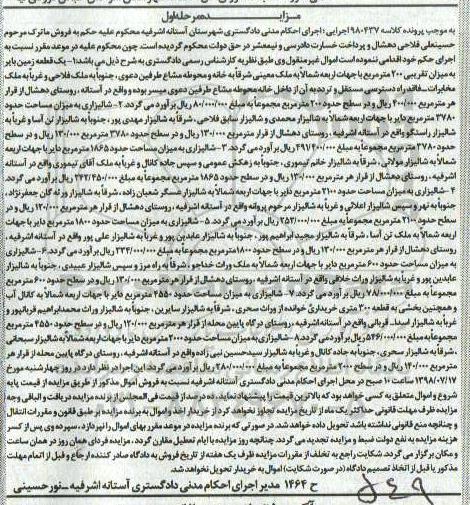 مزایده مرحله اول
به موجب پرونده کلاسه ۹۸۰۴۳۷ اجرایی، اجرای احکام مدنی دادگستری شهرستان آستانه اشرفیه محکوم علیه حکم به فروش ماترک مرحوم
حسینعلی فلاحی دهشال و پرداخت خسارت دادرسی و نیم عشر در حق دولت محکوم گردیده است. چون محکوم علیه در موعد مقرر نسبت به
اجرای حکم خود اقدامی ننموده است اموال غیر منقول وی طبق نظریه کارشناس رسمی دادگستری به شرح ذیل می باشد: ۱- یک قطعه زمین بایر
به میزان تقریبی ۲۰۰ مترمربع با جهات اربعه شمالاً به ملک معینی شرقاً به خانه و محوطه مشاع طرفین دعوی، جنوباً به ملک فلاحی و غرباً به ملک
مخابرات... فاقد راه دسترسی مستقل و تردد به آن از داخل خانه محوطه مشاع طرفین دعوی میسر بوده و واقع در آستانه اشرفیه، روستای دهشال از قرار
هر مترمربع ۴۰۰/۰۰۰ ریال و در سطح حدود ۲۰۰ مترمربع مجموعاً به مبلغ ۸۰/۰۰۰/۰۰۰ ریال برآورد می گردد. ۲- شالیزاری به میزان مساحت حدود
۳۷۸۰ مترمربع دایر با جهات اربعه شمالاً به شالیزار محمدی و شالیزار سابق فلاحی، شرقاً به شالیزار مهدی پور، جنوباً به شالیزار تن آسا و غرباً به
شالیزار راستگو واقع در آستانه اشرفیه، روستای دهشال از قرار هر مترمربع ۱۳۰/۰۰۰ ریال و در سطح حدود ۳۷۸۰ مترمربع
مجموعاً به مبلغ ۴۹۱/۴۰۰/۰۰۰ ریال برآورد می گردد. ۳- شالیزاری به میزان مساحت حدود ۱۸۶۵ مترمربع دایر با جهات اربعه
شمالاً به شالیزار مولائی، شرقاً به شالیزار خانم تیموری، جنوباً به زهکش عمومی و سپس جاده کانال و غرباً به ملک آقای تیموری واقع در آستانه
اشرفیه، روستای دهشال از قرار هر مترمربع ۱۳۰/۰۰۰ ریال و در سطح حدود ۱۸۶۵ مترمربع مجموعاً به مبلغ ۲۴۲/۴۵۰/۰۰۰ ریال برآورد می گردد.
۴- شالیزاری به میزان مساحت حدود ۲۱۰۰ مترمربع دایر با جهات اربعه شمالاً به شالیزار عسگر شعبان زاده، شرقاً به شالیزار ورثه گان جعفرنژاد،
جنوباً به نهر و سپس شالیزار اعلائی و غرباً به شالیزار مرحوم پروانه واقع در آستانه اشرفیه، روستای دهشال از قرار هر مترمربع ۱۲۰/۰۰۰ ریال و در
سطح حدود ۲۱۰۰ مترمربع مجموعاً به مبلغ ۲۵۲/۰۰۰/۰۰۰ ریال برآورد می گردد. ۵- شالیزاری به میزان مساحت حدود ۱۸۰۰ مترمربع دایر با جهات
اربعه شمالاً به ملک تن آسا، شرقاً به شالیزار مجید ابراهیم پور، جنوباً به شالیزار عابدین پور و غرباً به شالیزار علی پور واقع در آستانه اشرفیه،
روستای دهشال از قرار هر مترمربع ۱۳۰/۰۰۰ ریال و در سطح حدود ۱۸۰۰ مترمربع مجموعاً به مبلغ ۲۳۴/۰۰۰/۰۰۰ ریال برآورد می گردد. ۶- شالیزاری
به میزان مساحت حدود ۶۰۰ مترمربع دایر با جهات اربعه شمالاً به ملک وراث خداجو، شرقاً به راه مرز و سپس شالیزار عبیدی، جنوباً به شالیزار
عابدین پور و غرباً به شالیزار وراث خلاقی واقع در آستانه اشرفیه، روستای دهشال از قرار هر مترمربع ۱۳۰/۰۰۰ ریال و در سطح حدود ۶۰۰ مترمربع
مجموعاً به مبلغ ۷۸/۰۰۰/۰۰۰ ریال برآورد می گردد. ۷- شالیزاری به میزان مساحت حدود ۴۵۵۰ مترمربع دایر با جهات اربعه شمالاً به کانال آب
و همچنین بخشی به قطعه ۳۰۰ متری خریداری خوانده از وراث سحری، شرقاً به شالیزار سایرین، جنوباً به شالیزار وراث محمدابراهیم قربانپور و
غرباً به شالیزار اسد... قربانی واقع در آستانه اشرفیه، روستای درگاه پایین محله از قرار هر مترمربع ۱۲۰/۰۰۰ ریال و در سطح حدود ۴۵۵۰ مترمربع
مجموعاً به مبلغ ۵۴۶/۰۰۰/۰۰۰ ریال برآورد می گردد. ۸- شالیزاری به میزان مساحت حدود ۲۰۰۰ مترمربع دایر با جهات اربعه شمالاً به شالیزار سبحانی
، شرقاً به شالیزار سحری، جنوباً به جاده کانال و غرباً به شالیزار سیدحسین نبی زاده واقع در آستانه اشرفیه، روستای درگاه پایین محله از قرار هر
مترمربع ۱۴۰/۰۰۰ ریال و در سطح حدود ۲۰۰۰ مترمربع مجموعاً به مبلغ ۲۸۰/۰۰۰/۰۰۰ ریال برآورد می گردد. این اجرا در نظر دارد در روز چهارشنبه مورخ
۱۳۹۸/۰۷/۱۷ ساعت ۱۰ صبح در محل اجرای احکام مدنی دادگستری آستانه اشرفیه نسبت به فروش اموال مذکور از طریق مزایده از قیمت پایه
شروع و اموال متعلق به کسی خواهد بود که بالاترین قیمت را پیشنهاد نماید. ده درصد از قیمت فی المجلس از برنده مزایده دریافت و الباقی وجه
مزایده ظرف مهلت قانونی حداکثر یک ماه از تاریخ مزایده تجاوز نخواهد کرد از خریدار اخذ و اموال به برنده مزایده بر طبق قانون و مقررات انتقال
و چنانچه منع قانونی نداشته باشد تحویل داده خواهد شد. در صورتی که برنده مزایده در موعد مقرر بهای اموال را نپردازد، سپرده وی پس از کسر
هزینه مزایده به نفع دولت ضبط و مزایده تجدید می گردد. چنانچه روز مزایده با ایام تعطیل مقارن گردد. مزایده فردای همان روز در همان ساعت
و مکان برگزار می گردد. شکایت راجع به تخلف از مقررات مزایده ظرف یک هفته از تاریخ فروش به دادگاه صادر کننده ارجاع و قبل از اتمام مهلت
مذکور یا قبل از اتخاذ تصمیم دادگاه (در صورت شکایت) اموال به خریدار تحویل نخواهد شد.
ح ۱۴۶۴ مدیر اجرای احکام مدنی دادگستری آستانه اشرفیه - نورحسینی